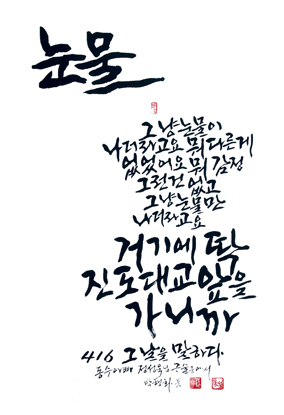 눈물
그냥 눈물이
나더라고요 뭐 다른게
없었어요 뭐 감정
그런건 없고
그냥 눈물만
나더라고요
거기에 딱
진도대교 앞을
가니까
416 그날을 말하다.
동수아빠 정성욱님 구술문에서